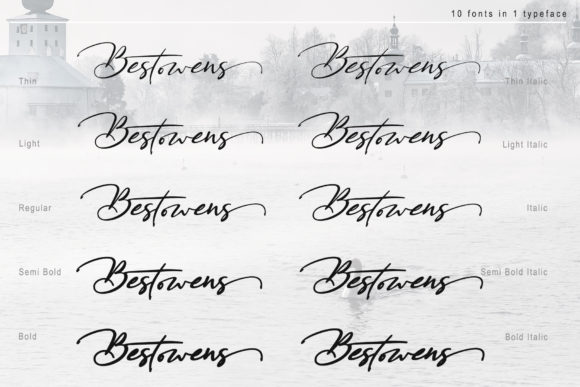 10 fonts in 1 typeface
Bestowens Bestowens
Thin Thin Italic
Bestowens Bestowens
Light Light Italic
Bestowens Bestowens
Regular Italic
Bestowens Bestowens
Semi Bold Semi Bold Italic
Bestowens Bestowens
Bold Bold Italic